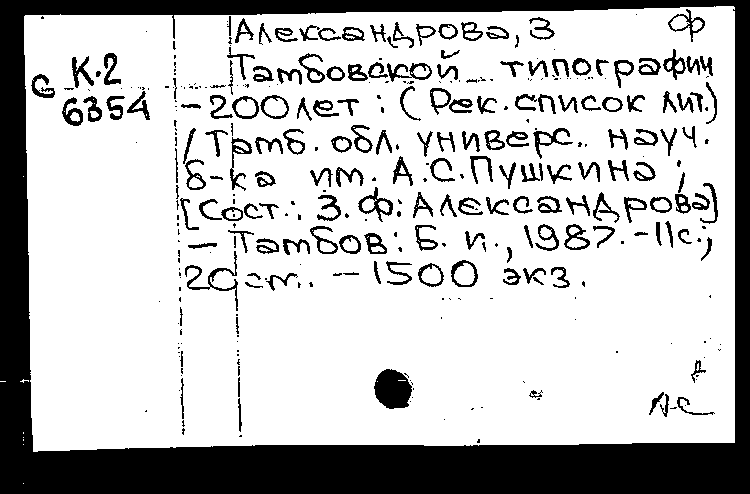 Александрова, З ф
С К.2 Тамбовской типографии
6354 - 200 лет : (Рек. список лит.)
/ Тамб. обл. универс. науч.
б-ка им. А.С.Пушкина ;
[Сост.: З.Ф. Александрова]
- Тамбов : Б. и., 1987. - 11с.;
20 см. - 1500 экз.
А-С